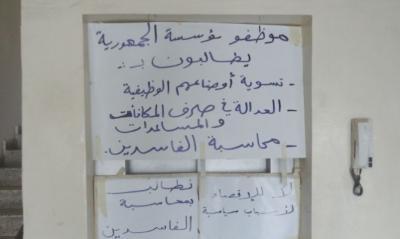 موظفو مؤسسة الجمهورية
يطالبون بـ:
- تسوية أوضاعهم الوظيفية
- العدالة في صرف المكافآت
والمساعدات
- محاسبة الفاسدين.
نطالب
بمحاسبة
الفاسدين
لا للإقصاء
لأسباب سياسية